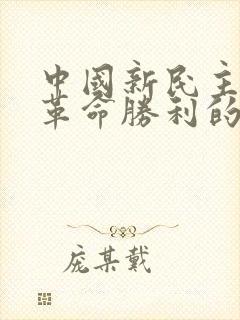 中國新民主
革命勝利的
龐某戴